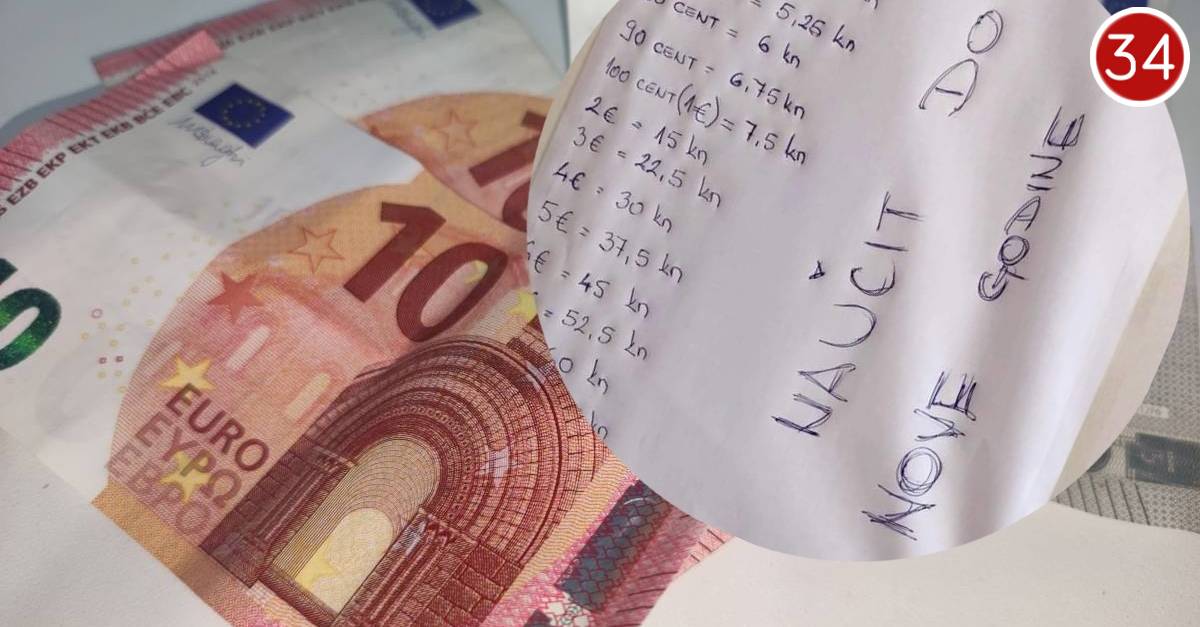 34
EZB EKP EKT EKB BCE EBC
10
10
5
EURO
ΕΥΡΩ
ЕВРО
= 5,25 kn
CENT = 6 kn
90 CENT = 6,75 kn
100 CENT (1€) = 7,5 kn
2€ = 15 kn
3€ = 22,5 kn
4€ = 30 kn
5€ = 37,5 kn
€ = 45 kn
= 52,5 kn
0 kn
kn
NAUČIT DO
NOVE GODINE